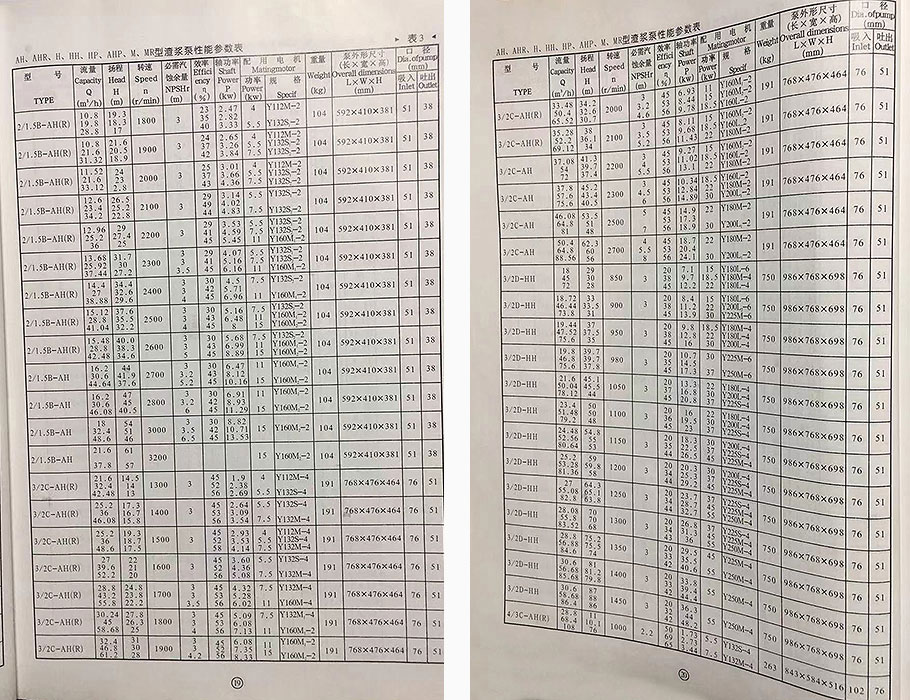 AH、AHR、H、HH、HP、AHP、M、MR型渣浆泵性能参数表 ► 表3 ◄
型 号 流量 扬程 转速 必需汽 效率 轴功率 配 用 电 机 重量 泵外形尺寸 口 径
TYPE Capacity Head Speed 蚀余量 Effici ency Shaft Power Matingmotor Weight (长×宽×高) Dia.ofpump
Q H n NPSHr η P 功率 规 格 (kg) Overall dimensions (mm)
(m³/h) (m) (r/min) (m) (%) (kw) Power (kw) Specif L×W×H (mm) 吸入 Inlet 吐出 Outlet
10.8 19.3 23 2.47 4 Y112M-2
2/1.5B-AH(R) 19.8 18.3 1800 3 35 2.82 104 592×410×381 51 38
28.8 17 40 3.33 5.5 Y132S₁-2
10.8 21.6 24 2.65 4 Y112M-2
2/1.5B-AH(R) 21.6 20.5 1900 3 37 3.26 5.5 Y132S₁-2 104 592×410×381 51 38
31.32 18.9 42 3.84 7.5 Y132S₂-2
11.52 25 3.01 4 Y112M-2
2/1.5B-AH(R) 21.6 24 2000 3 37 3.66 5.5 Y132S₁-2 104 592×410×381 51 38
33.12 2.8 43 4.36 7.5 Y132S₂-2
12.6 26.5 29 3.14 5.5 Y132S₁-2
2/1.5B-AH(R) 23.4 25.2 2100 3 49 4.02 104 592×410×381 51 38
34.2 22.8 44 4.83 7.5 Y132S₂-2
12.96 29 29 3.59 5.5 Y132S₁-2
2/1.5B-AH(R) 25.2 27.4 2200 3 41 4.59 7.5 Y132S₂-2 104 592×410×381 51 38
36 25 45 5.45 11 Y160M₁-2
13.68 31.7 3 29 4.07 5.5 Y132S₁-2
2/1.5B-AH(R) 25.92 30 2300 3 41 5.16 7.5 Y132S₂-2 104 592×410×381 51 38
37.44 27.2 3.5 45 6.16 11 Y160M₁-2
14.4 34.4 3 30 4.5 7.5 Y132S₂-2
2/1.5B-AH(R) 27 32.6 2400 3 42 5.71 104 592×410×381 51 38
38.88 29.6 4 45 6.96 11 Y160M₁-2
15.12 37.6 3 30 5.16 7.5 Y132S₂-2
2/1.5B-AH(R) 28.8 35.5 2500 3 43 6.48 11 Y160M₁-2 104 592×410×381 51 38
41.04 32.2 4 45 8 15 Y160M₂-2
15.48 40.0 3 30 5.68 7.5 Y132S₂-2
2/1.5B-AH(R) 28.8 38.3 2600 3 43 6.99 11 Y160M₁-2 104 592×410×381 51 38
42.48 34.6 5 45 8.89 15 Y160M₂-2
16.2 3 30 6.47 11 Y160M₁-2
2/1.5B-AH 30.6 41.9 2700 3.2 43 8.12 104 592×410×381 51 38
44.64 37.6 5.2 45 10.16 15 Y160M₂-2
16.2 47 3 30 6.91 11 Y160M₁-2
2/1.5B-AH 30.6 45 2800 3.2 42 8.93 104 592×410×381 51 38
46.08 40.5 6 45 11.29 15 Y160M₂-2
18 54 3 30 8.82
2/1.5B-AH 32.4 51 3000 3.5 42 10.71 15 Y160M₂-2 104 592×410×381 51 38
48.6 46 6.5 45 13.53
21.6 61
2/1.5B-AH 3200 15 Y160M₂-2 104 592×410×381 51 38
37.8 57
21.6 14.5 45 1.9 4 Y112M-4
3/2C-AH(R) 32.4 14 1300 3 52 2.38 191 768×476×464 76 51
42.48 13 56 2.69 5.5 Y132S-4
25.2 17.3 45 2.64 5.5 Y132S-4
3/2C-AH(R) 36 16.7 1400 3 53 3.09 191 768×476×464 76 51
46.08 15.8 56 3.54 7.5 Y132M-4
25.2 19.3 45 2.93 4 Y112M-4
3/2C-AH(R) 36 18.7 1500 3 52 3.53 5.5 Y132S-4 191 768×476×464 76 51
48.6 17.5 58 4.14 7.5 Y132M-4
27 22 45 3.60 5.5 Y132S-4
3/2C-AH(R) 39.6 21 1600 3 52 4.36 191 768×476×464 76 51
52.2 20 56 5.08 7.5 Y132M-4
28.8 24.8 3 45 4.32 7.5 Y132M-4
3/2C-AH(R) 43.2 23.8 1700 3 53 5.28 191 768×476×464 76 51
55.8 22.2 3.5 56 6.02 11 Y160M-4
30.24 27.8 3 45 5.09 7.5 Y132M-4
3/2C-AH(R) 45 26.3 1800 3 53 6.08 191 768×476×464 76 51
58.68 25 4 56 7.13 11 Y160M-2
32.4 31 3 44 6.08 11 Y160M₁-2
3/2C-AH(R) 46.8 30 1900 3 53 7.35 191 768×476×464 76 51
61.2 28 4.2 56 8.33 15 Y160M₂-2
19
AH、AHR、H、HH、HP、AHP、M、MR型渣浆泵性能参数表
型 号 流量 扬程 转速 必需汽 效率 轴功率 配 用 电 机 重量 泵外形尺寸 口 径
TYPE Capacity Head Speed 蚀余量 Effici ency Shaft Power Matingmotor Weight (长×宽×高) Dia.ofpump
Q H n NPSHr η P 功率 规 格 (kg) Overall dimensions (mm)
(m³/h) (m) (r/min) (m) (%) (kw) Power (kw) Specif L×W×H (mm) 吸入 Inlet 吐出 Outlet
33.48 34.2 3 45 6.93 11
3/2C-AH(R) 50.4 32.6 2000 3.2 53 8.44 15 191 768×476×464 76 51
65.52 30.7 4.6 56 9.78 18.5 Y160L-2
35.28 38 3 45 8.11
3/2C-AH(R) 52.2 36.1 2100 3.5 53 9.68 191 768×476×464 76 51
69.12 34 5.2 56 11.43 22 Y180M-2
37.08 41.3 3 45 9.27 15
3/2C-AH(R) 54 39.7 2200 4 53 11.02 18.5 Y160L-2 191 768×476×464 76 51
72 37.4 5.5 56 13.1 22 Y180M-2
37.8 45.2 3 45 10.34 18.5 Y160L-2
3/2C-AH 57.6 43.4 2300 4 53 12.84 22 Y180M-2 191 768×476×464 76 51
75.6 40.5 56 14.89 30 Y200L₁-2
46.08 53.5 5 45 14.9 22 Y180M-2
3/2C-AH 64.8 51 2500 53 17.3 191 768×476×464 76 51
81 48 7 56 18.9 30 Y200L₁-2
50.4 62.3 45 18.7 22 Y180M-2
3/2C-AH 64.8 60 2700 5.5 53 20.4 191 768×476×464 76 51
88.56 56 8 56 24.1 30 Y200L₁-2
18 29 20 7.1 15 Y180L-6
3/2D-HH 36 30 850 3 38 9.7 18.5 750 986×768×698 76 51
72 28 45 12.2 22
18.72 33 20 8.4 15 Y180L-6
3/2D-HH 46.44 33.5 900 3 38 11.2 22 750 986×768×698 76 51
73.8 31 45 13.9 30 Y225M-6
19.44 37 20 9.8 18.5 Y180M-4
3/2D-HH 47.52 37.5 950 3 38 12.8 22 Y180L-4 750 986×768×698 76 51
75.6 35 45 16 30 Y200L-4
19.8 39.7 20 10.7 30 Y225M-6
3/2D-HH 46.8 39.7 980 3 35 14.5 750 986×768×698 76 51
75.6 37.8 45 17.3 37 Y250M-6
21.6 45.1 20 13.3 22 Y180L-4
3/2D-HH 50.04 45.5 1050 3 37 16.8 30 Y200L-4 750 986×768×698 76 51
78.12 44 45 20.8 37 Y225S-4
23.4 50 20 16 22 Y180L-4
3/2D-HH 51.48 50 1100 3 36 19.5 30 Y200L-4 750 986×768×698 76 51
79.2 48 45 23 37 Y225S-4
24.48 54.8 20 18.3 30 Y200L-4
3/2D-HH 52.56 55 1150 3 35 22.5 37 Y225S-4 750 986×768×698 76 51
80.64 53 44 26.5 45 Y225M-4
25.2 59 20 20.3 30 Y200L-4
3/2D-HH 53.28 59.8 1200 3 35 24.3 37 Y225S-4 750 986×768×698 76 51
81.36 58 44 29.2 45 Y225M-4
27 64.3 20 23.7 37 Y225S-4
3/2D-HH 55.08 65.1 1250 3 35 28 45 Y225M-4 750 986×768×698 76 51
82.8 63.8 44 32.7 55 Y250M-4
28.08 70 20 26.8 37
3/2D-HH 55.8 70 1300 3 34 31.3 45 Y225M-4 750 986×768×698 76 51
83.52 68 43 36 55 Y250M-4
28.8 75.2 20 29.5 45 Y225M-4
3/2D-HH 56.88 75.5 1350 3 33 35.5 750 986×768×698 76 51
84.6 74 42 55 Y250M-4
30.6 81 20 33.8 45
3/2D-HH 56.68 81.2 1400 3 32 39.4 750 986×768×698 76 51
85.68 79.8 42 44.4 55 Y250M-4
30.6 87 20 36.3
3/2D-HH 58.68 88 1450 3 32 44 55 Y250M-4 750 986×768×698 76 51
86.4 86 42 48.2
28.8 10.1 50 1.73
4/3C-AH(R) 68.4 1000 2.2 65 2.73 5.5 263 843×584×516 102 76
108 76 65 3.44 7.5 Y132M-4
20